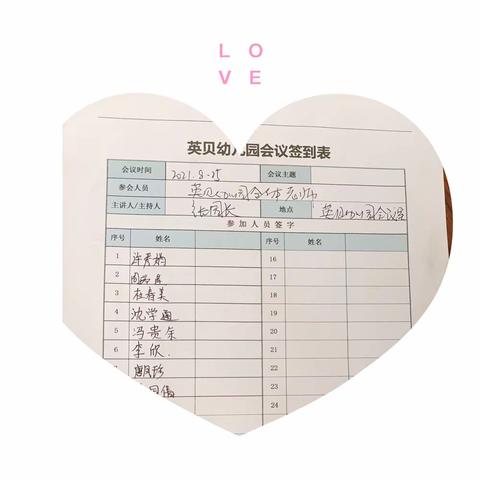 LO
VE
英贝幼儿园会议签到表
会议时间 2021.8.25 会议主题
参会人员 英贝幼儿园全体老师
主讲人/主持人 张园长 地点 英贝幼儿园会议室
参加人员签字
序号 姓名 序号 姓名
1 许秀娟 16
2 17
3 杜春美 18
4 沈学通 19
5 冯贵余 20
6 李欣. 21
22
23
24